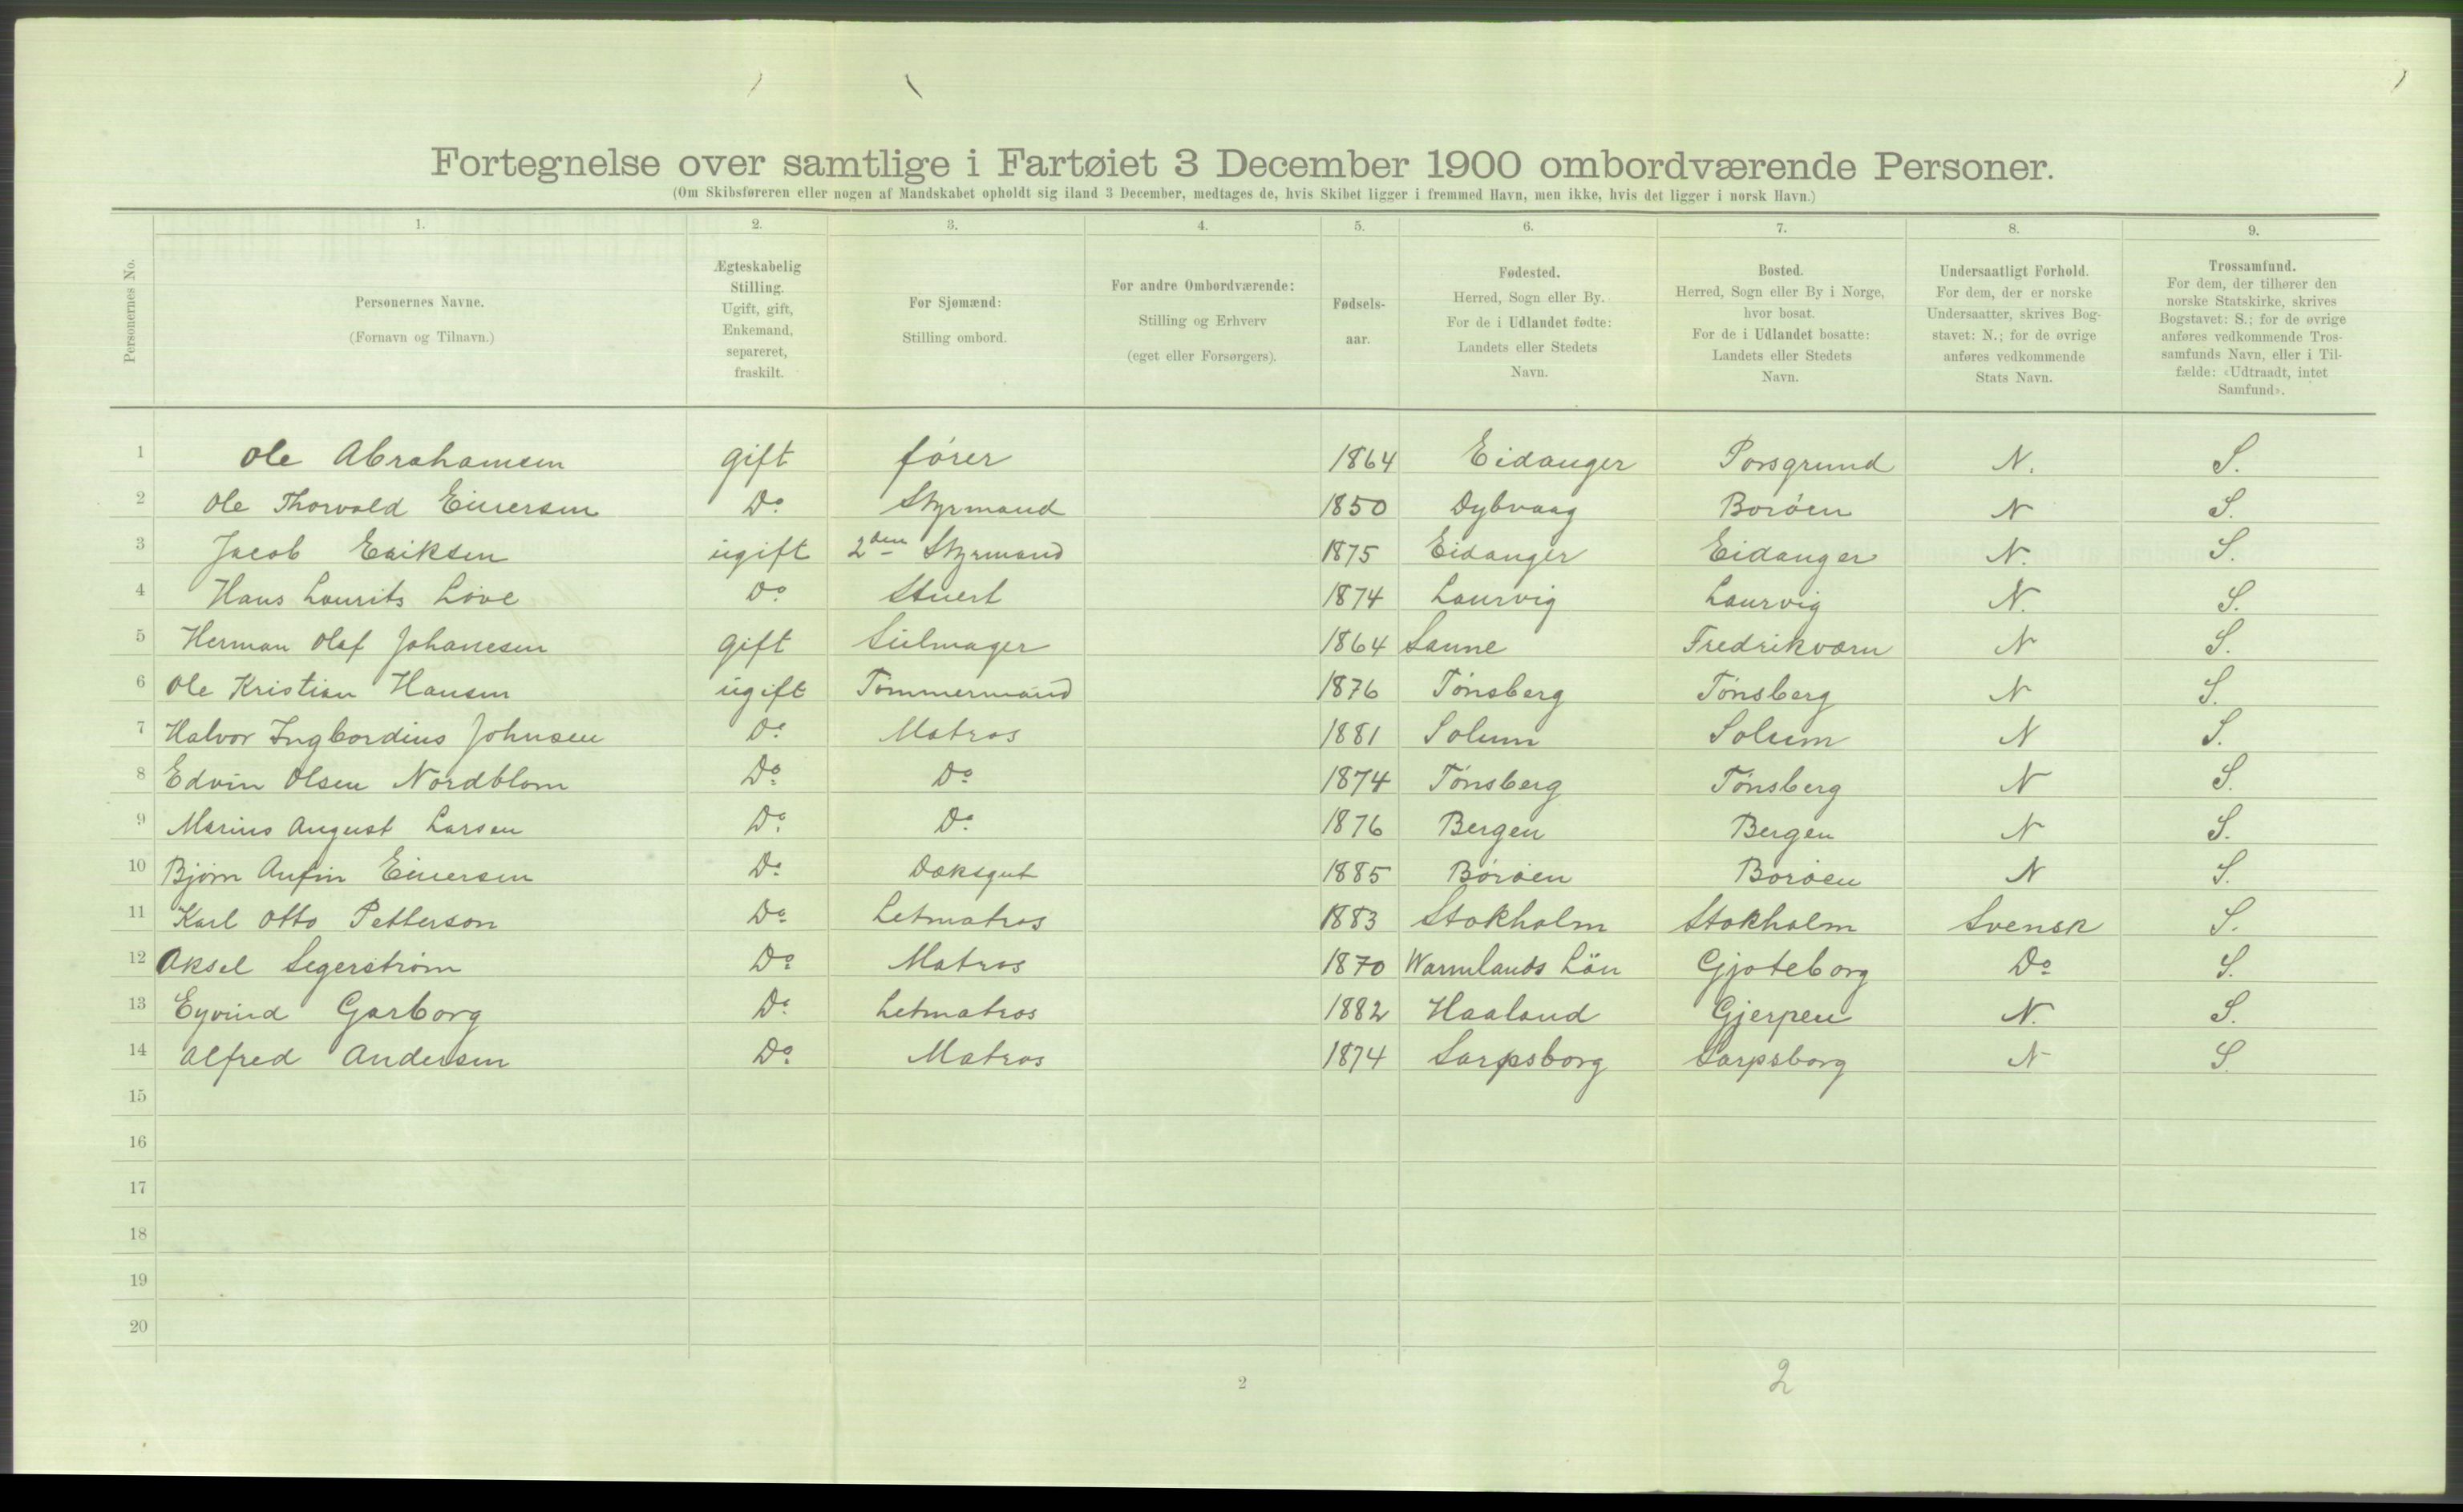 Fortegnelse over samtlige i Fartøiet 3 December 1900 ombordværende Personer.
(Om Skibsføreren eller nogen af Mandskabet opholdt sig iland 3 December, medtages de, hvis Skibet ligger i fremmed Havn, men ikke, hvis det ligger i norsk Havn.)
1. 2. 3. 4. 5. 6. 7. 8. 9.
Personernes No.
Personernes Navne.
(Fornavn og Tilnavn.)
Ægteskabelig
Stilling.
Ugift, gift,
Enkemand,
separeret,
fraskilt.
For Sjømænd:
Stilling ombord.
For andre Ombordværende:
Stilling og Erhverv
(eget eller Forsørgers).
Fødsels-
aar.
Fødested.
Herred, Sogn eller By.
For de i Udlandet fødte:
Landets eller Stedets
Navn.
Bosted.
Herred, Sogn eller By i Norge,
hvor bosat.
For de i Udlandet bosatte:
Landets eller Stedets
Navn.
Undersaatligt Forhold.
For dem, der er norske
Undersaatter, skrives Bog-
stavet: N.; for de øvrige
anføres vedkommende
Stats Navn.
Trossamfund.
For dem, der tilhører den
norske Statskirke, skrives
Bogstavet: S.; for de øvrige
anføres vedkommende Tros-
samfunds Navn, eller i Til-
fælde: «Udtraadt, intet
Samfund».
1 Ole Abrahamsen gift fører 1864 Eidanger Porsgrund N. S.
2 Ole Thorvald Einersen Do Styrmand 1850 Dybvaag Borøen N S.
3 Jacob Eriksen ugift 2den Styrmand 1875 Eidanger Eidanger N. S.
4 Hans Laurits Löve Do Stuert 1874 Laurvig Laurvig N. S.
5 Herman Olaf Johanesen gift Seilmager 1864 Sanne Fredriksværn N S.
6 Ole Kristian Hansen ugift Tømmermand 1876 Tönsberg Tönsberg N S.
7 Halvor Ingbordius Johnsen Do Matros 1881 Solum Solum N S.
8 Edvin Olsen Nordblom Do Do 1874 Tönsberg Tönsberg N S.
9 Marius August Larsen Do Do 1876 Bergen Bergen N S.
10 Bjørn Anfin Einersen Do Dæksgut 1885 Boröen Boröen N S.
11 Karl Otto Petterson Do Letmatros 1883 Stokholm Stokholm Svensk S.
12 Aksel Segerström Do Matros 1870 Warmlands Län Gjøteborg Do S.
13 Eyvind Garborg Do Letmatros 1882 Haaland Gjerpen N. S.
14 Alfred Andersen Do Matros 1874 Sarpsborg Sarpsborg N S.
15
16
17
18
19
20
2 2